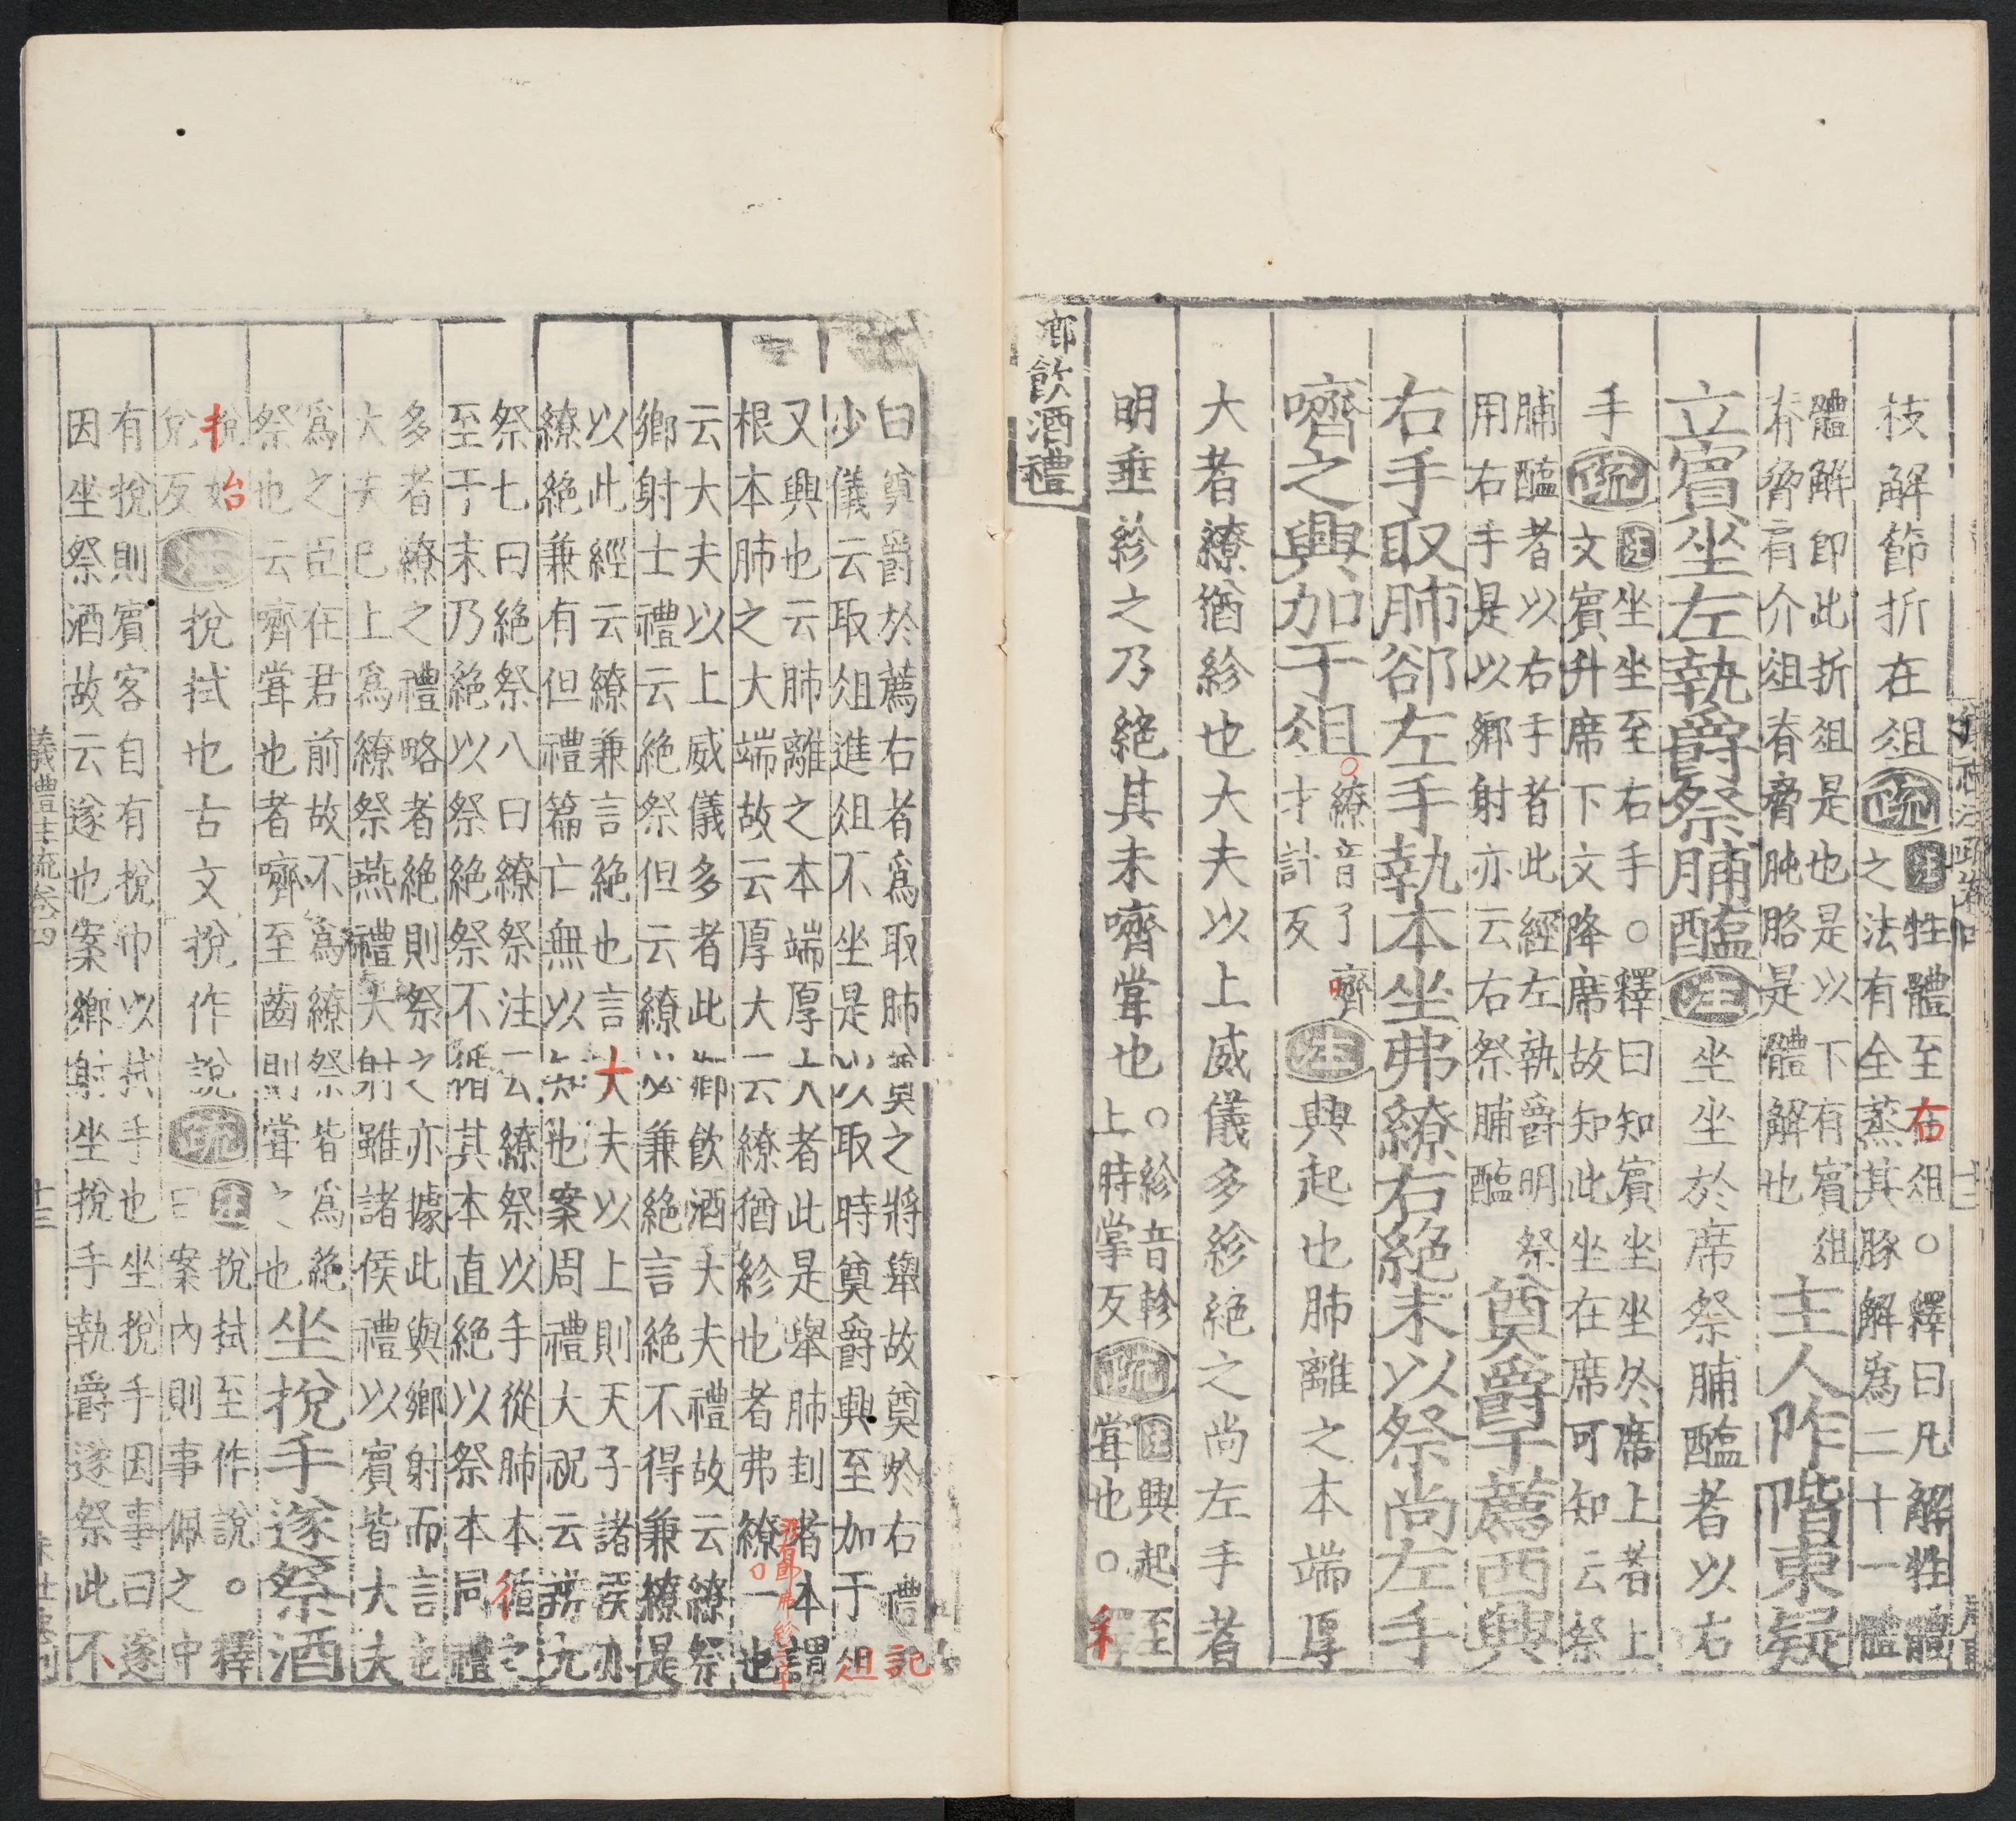 枝解節折在俎疏注牲體至右俎○釋曰凡解牲體
之法有全蒸其豚解爲二十一體
體解即此折俎是也是以下有賓俎
脊脅肩介俎脊脅肫胳是體解也主人阼階東疑
立賓坐左執爵祭脯醢注坐坐於席祭脯醢者以右
手疏注坐坐至右手○釋曰知賓坐坐於席上者上
文賓升席下文降席故知此坐在席可知云祭
脯醢者以右手者此經左執爵明祭
用右手是以鄉射亦云右祭脯醢奠爵于薦西興
右手取肺卻左手執本坐弗繚右絕末以祭尚左手
嚌之興加于俎○繚音了嚌
才計反注興起也肺離之本端厚
大者繚猶紾也大夫以上威儀多紾絕之尚左手者
明垂紾之乃絕其末嚌甞也○紾音軫
上時掌反疏注興起至
甞也○釋
鄉飲酒禮
曰奠爵於薦右者爲取肺奠之將舉故奠於右禮記
少儀云取俎進俎不坐是以取時奠爵興至加于俎
又興也云肺離之本端厚大者此是舉肺刲者本謂
根本肺之大端故云厚大云繚猶紾也者弗繚○一也
云大夫以上威儀多者此鄉飲酒大夫禮故云繚祭
鄉射士禮云絕祭但云繚必兼絕言絕不得兼繚是
以此經云繚兼言絕也言大夫以上則天子諸侯亦
繚絕兼有但禮篇亡無以知也案周禮大祝云辨九
祭七曰絕祭八曰繚祭注云繚祭以手從肺本循之
至于末乃絕以祭絕祭不循其本直絕以祭本同禮
多者繚之禮略者絕則祭之亦據此與鄉射而言也
大夫已上爲繚祭燕禮大射雖諸侯禮以賓皆大夫
爲之臣在君前故不爲繚祭皆爲絕
祭也云嚌甞也者嚌至齒則甞之也坐挩手遂祭酒
挩始
兌反注挩拭也古文挩作說疏注挩拭至作說。釋
曰案內則事佩之中
有挩則賓客自有挩巾以拭手也坐挩手因事曰遂
因坐祭酒故云遂也案鄉射坐挩手執爵遂祭此不
儀禮注疏卷四
十三